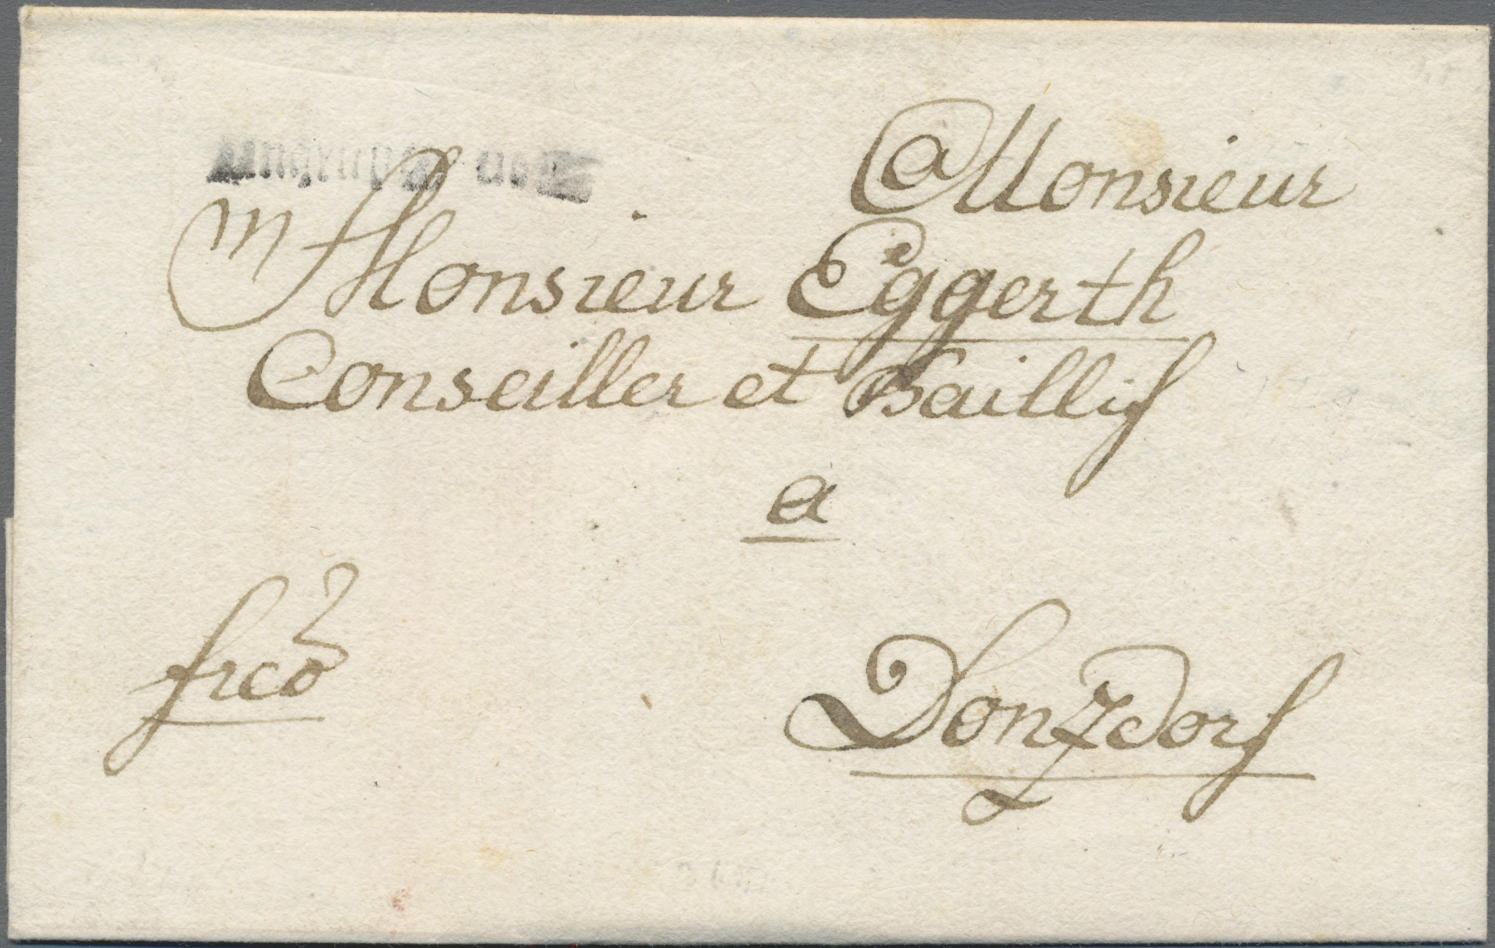 a Monsieur
Monsieur Eggerth
Conseiller et Baillif
a
frco
Donzdorf